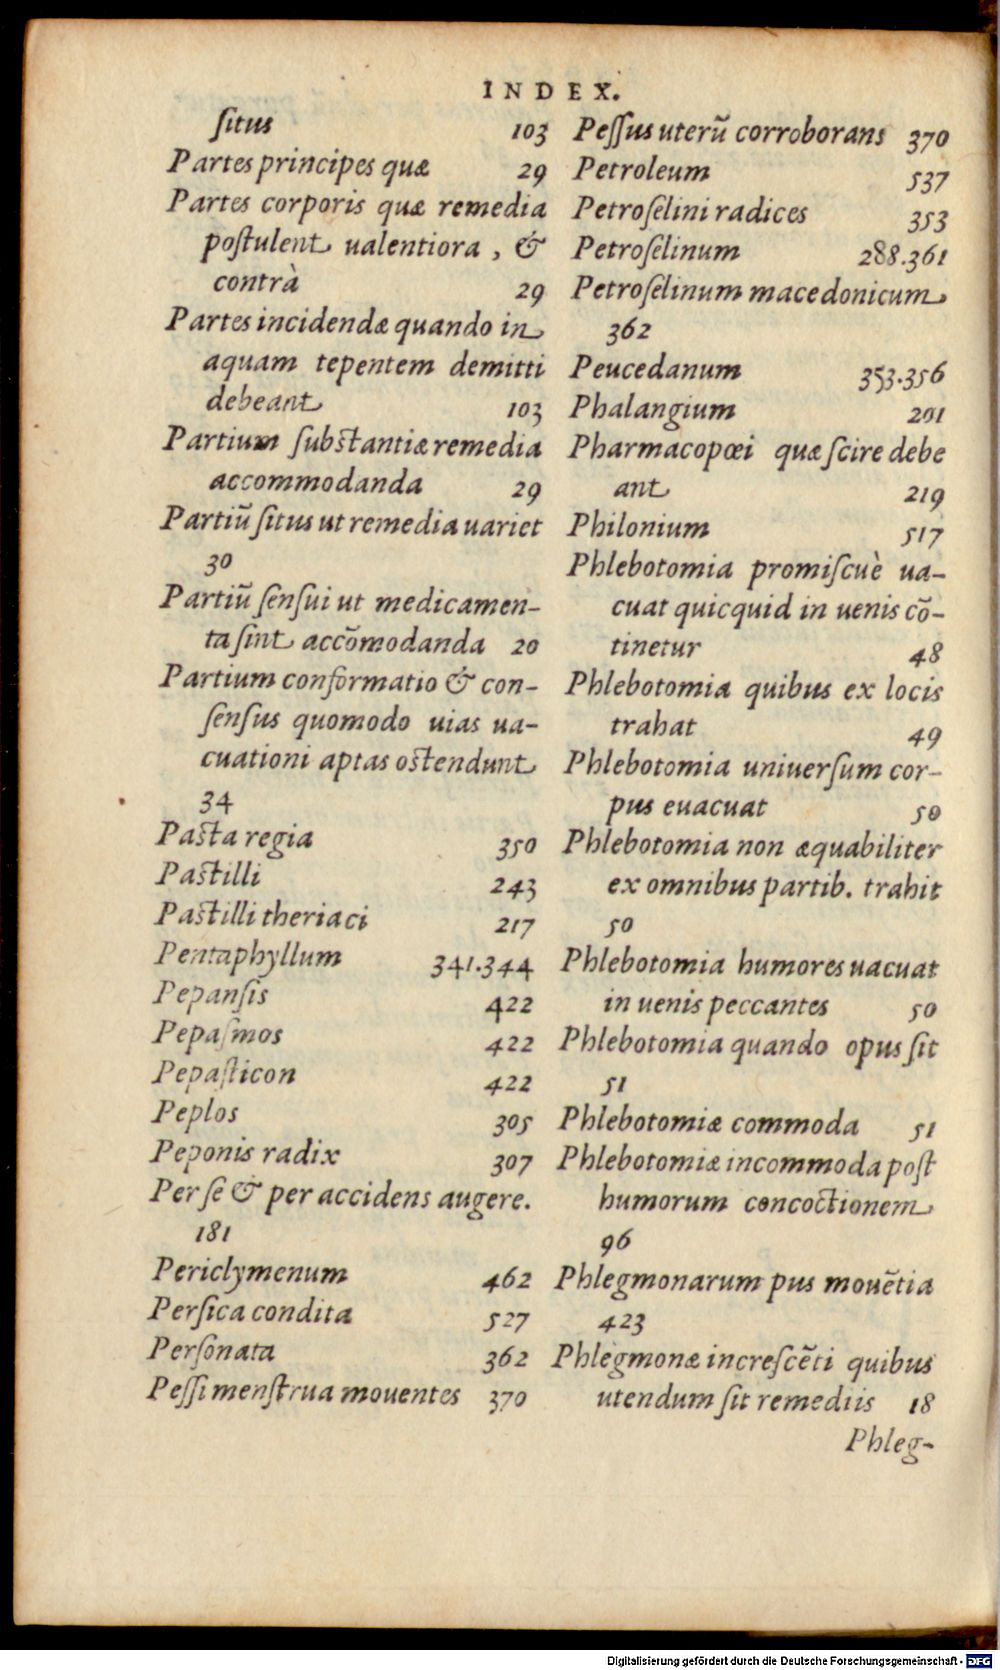 INDEX.
ſitus 103
Partes principes quæ 29
Partes corporis quæ remedia
poſtulent ualentiora, &
contrà 29
Partes incidendæ quando in
aquam tepentem demitti
debeant 103
Partium ſubstantiæ remedia
accommodanda 29
Partiū ſitus ut remedia uariet
30
Partiū ſenſui ut medicamen-
ta ſint accōmodanda 20
Partium conformatio & con-
ſenſus quomodo uias ua-
cuationi aptas ostendunt
34
Pasta regia 350
Pastilli 243
Pastilli theriaci 217
Pentaphyllum 341.344
Pepansis 422
Pepaſmos 422
Pepaſticon 422
Peplos 305
Peponis radix 307
Per ſe & per accidens augere.
181
Periclymenum 462
Perſica condita 527
Perſonata 362
Peſſi menſtrua mouentes 370
Peſſus uterū corroborans 370
Petroleum 537
Petroſelini radices 353
Petroſelinum 288.361
Petroſelinum macedonicum
362
Peucedanum 353.356
Phalangium 201
Pharmacopœi quæ ſcire debe
ant 219
Philonium 517
Phlebotomia promiſcuè ua-
cuat quicquid in uenis cō-
tinetur 48
Phlebotomia quibus ex locis
trahat 49
Phlebotomia uniuerſum cor-
pus euacuat 50
Phlebotomia non æquabiliter
ex omnibus partib. trahit
50
Phlebotomia humores uacuat
in uenis peccantes 50
Phlebotomia quando opus ſit
51
Phlebotomiæ commoda 51
Phlebotomiæ incommoda poſt
humorum concoctionem
96
Phlegmonarum pus mouētia
423
Phlegmonæ increſcēti quibus
utendum ſit remediis 18
Phleg-
Digitalisierung gefördert durch die Deutsche Forschungsgemeinschaft - DFG